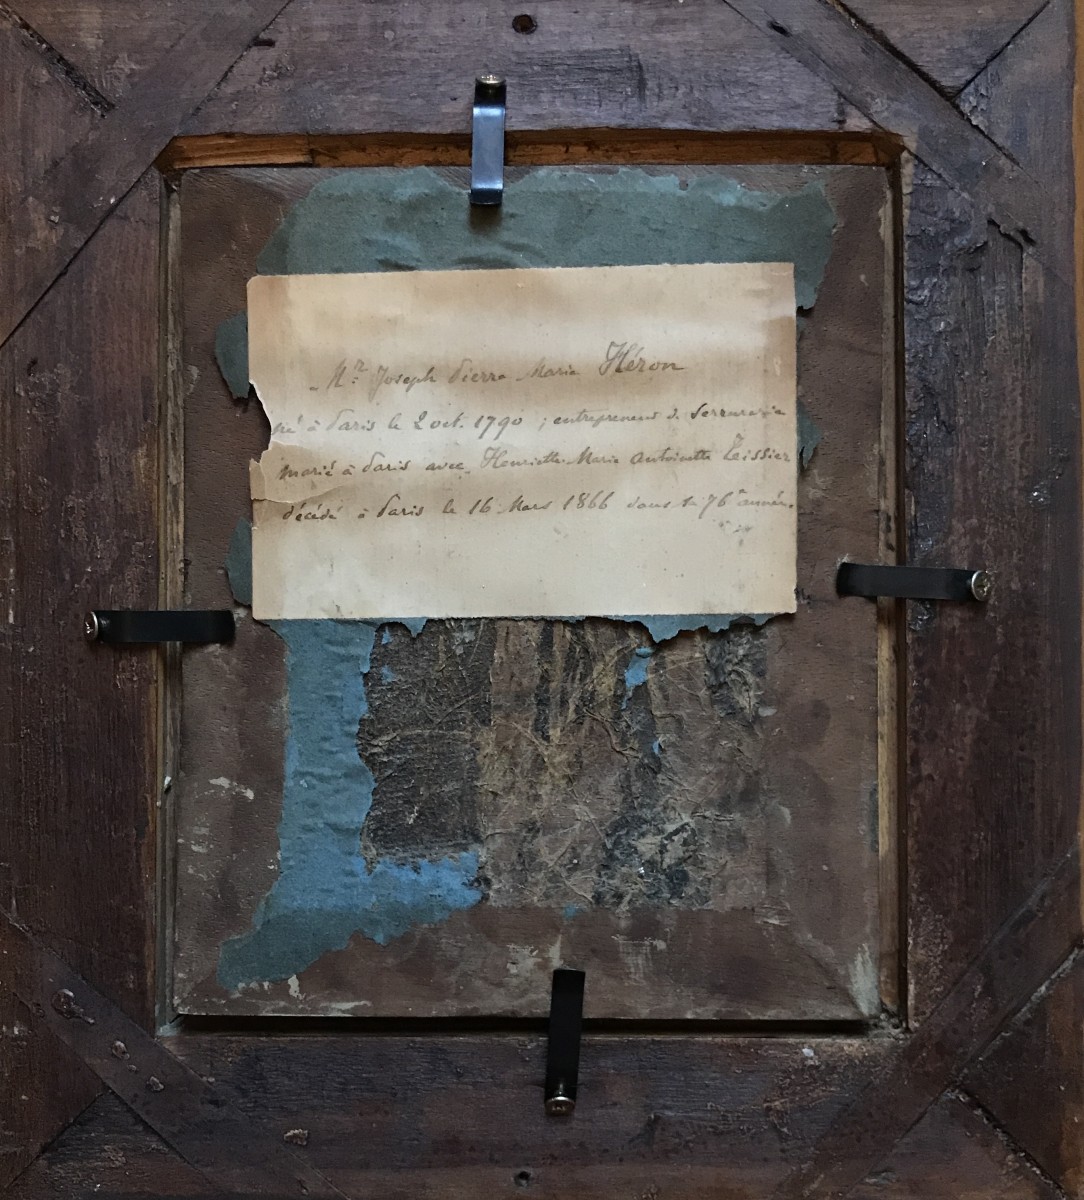 Mr. Joseph Pierre Marie Héron
né à Paris le 2 oct. 1790 ; entrepreneur de Serrurerie
marié à Paris avec Henriette Marie Antoinette Teissier
décédé à Paris le 16 Mars 1866 dans sa 76e année.